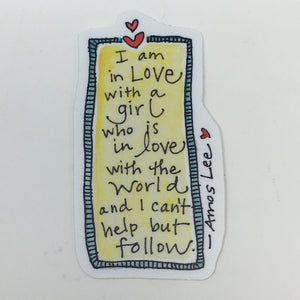 I am
in LOVE
with a
girl
who is
in love
with the
world
and I can't
help but
follow.
- Amos Lee